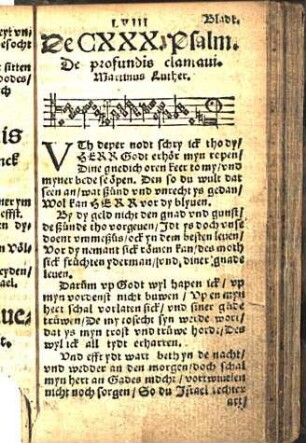 LVIII Bladt.
De CXXX. Psalm.
De profundis clamaui.
Martinus Luther.
VTh deper nodt schry ick tho dy/
HERR Godt erhör myn ropen/
Dine gnedich oren keer to my/ vnd
myner bede se öpen. Den so du wult dat
seen an/ wat sünd vnd vnrecht ys gedan/
Wol kan HERR vor dy blyuen.
By dy geld nicht den gnad vnd gunst/
de sünde tho vorgeuen/ Idt ys doch vnse
doent vmmesüs/ ock yn dem besten leuen/
Vor dy nemant sick römen kan/ des moth
sick früchten yderman/ vnd diner gnade
leuen.
Darüm vp Godt wyl hapen ick/ vp
myn vordenst nicht buwen/ Vp en myn
hert schal vorlaten sick/ vnd siner güde
trüwen/ De my tosecht syn werde wort/
dat ys myn trost vnd trüwe hord/ Des
wyl ick all tydt erharren.
Vnd efft ydt wart beth yn de nacht/
vnd wedder an den morgen/ doch schal
myn hert an Gades macht/ vortwiuelen
nicht noch sorgen/ So du Israel rechter
art/